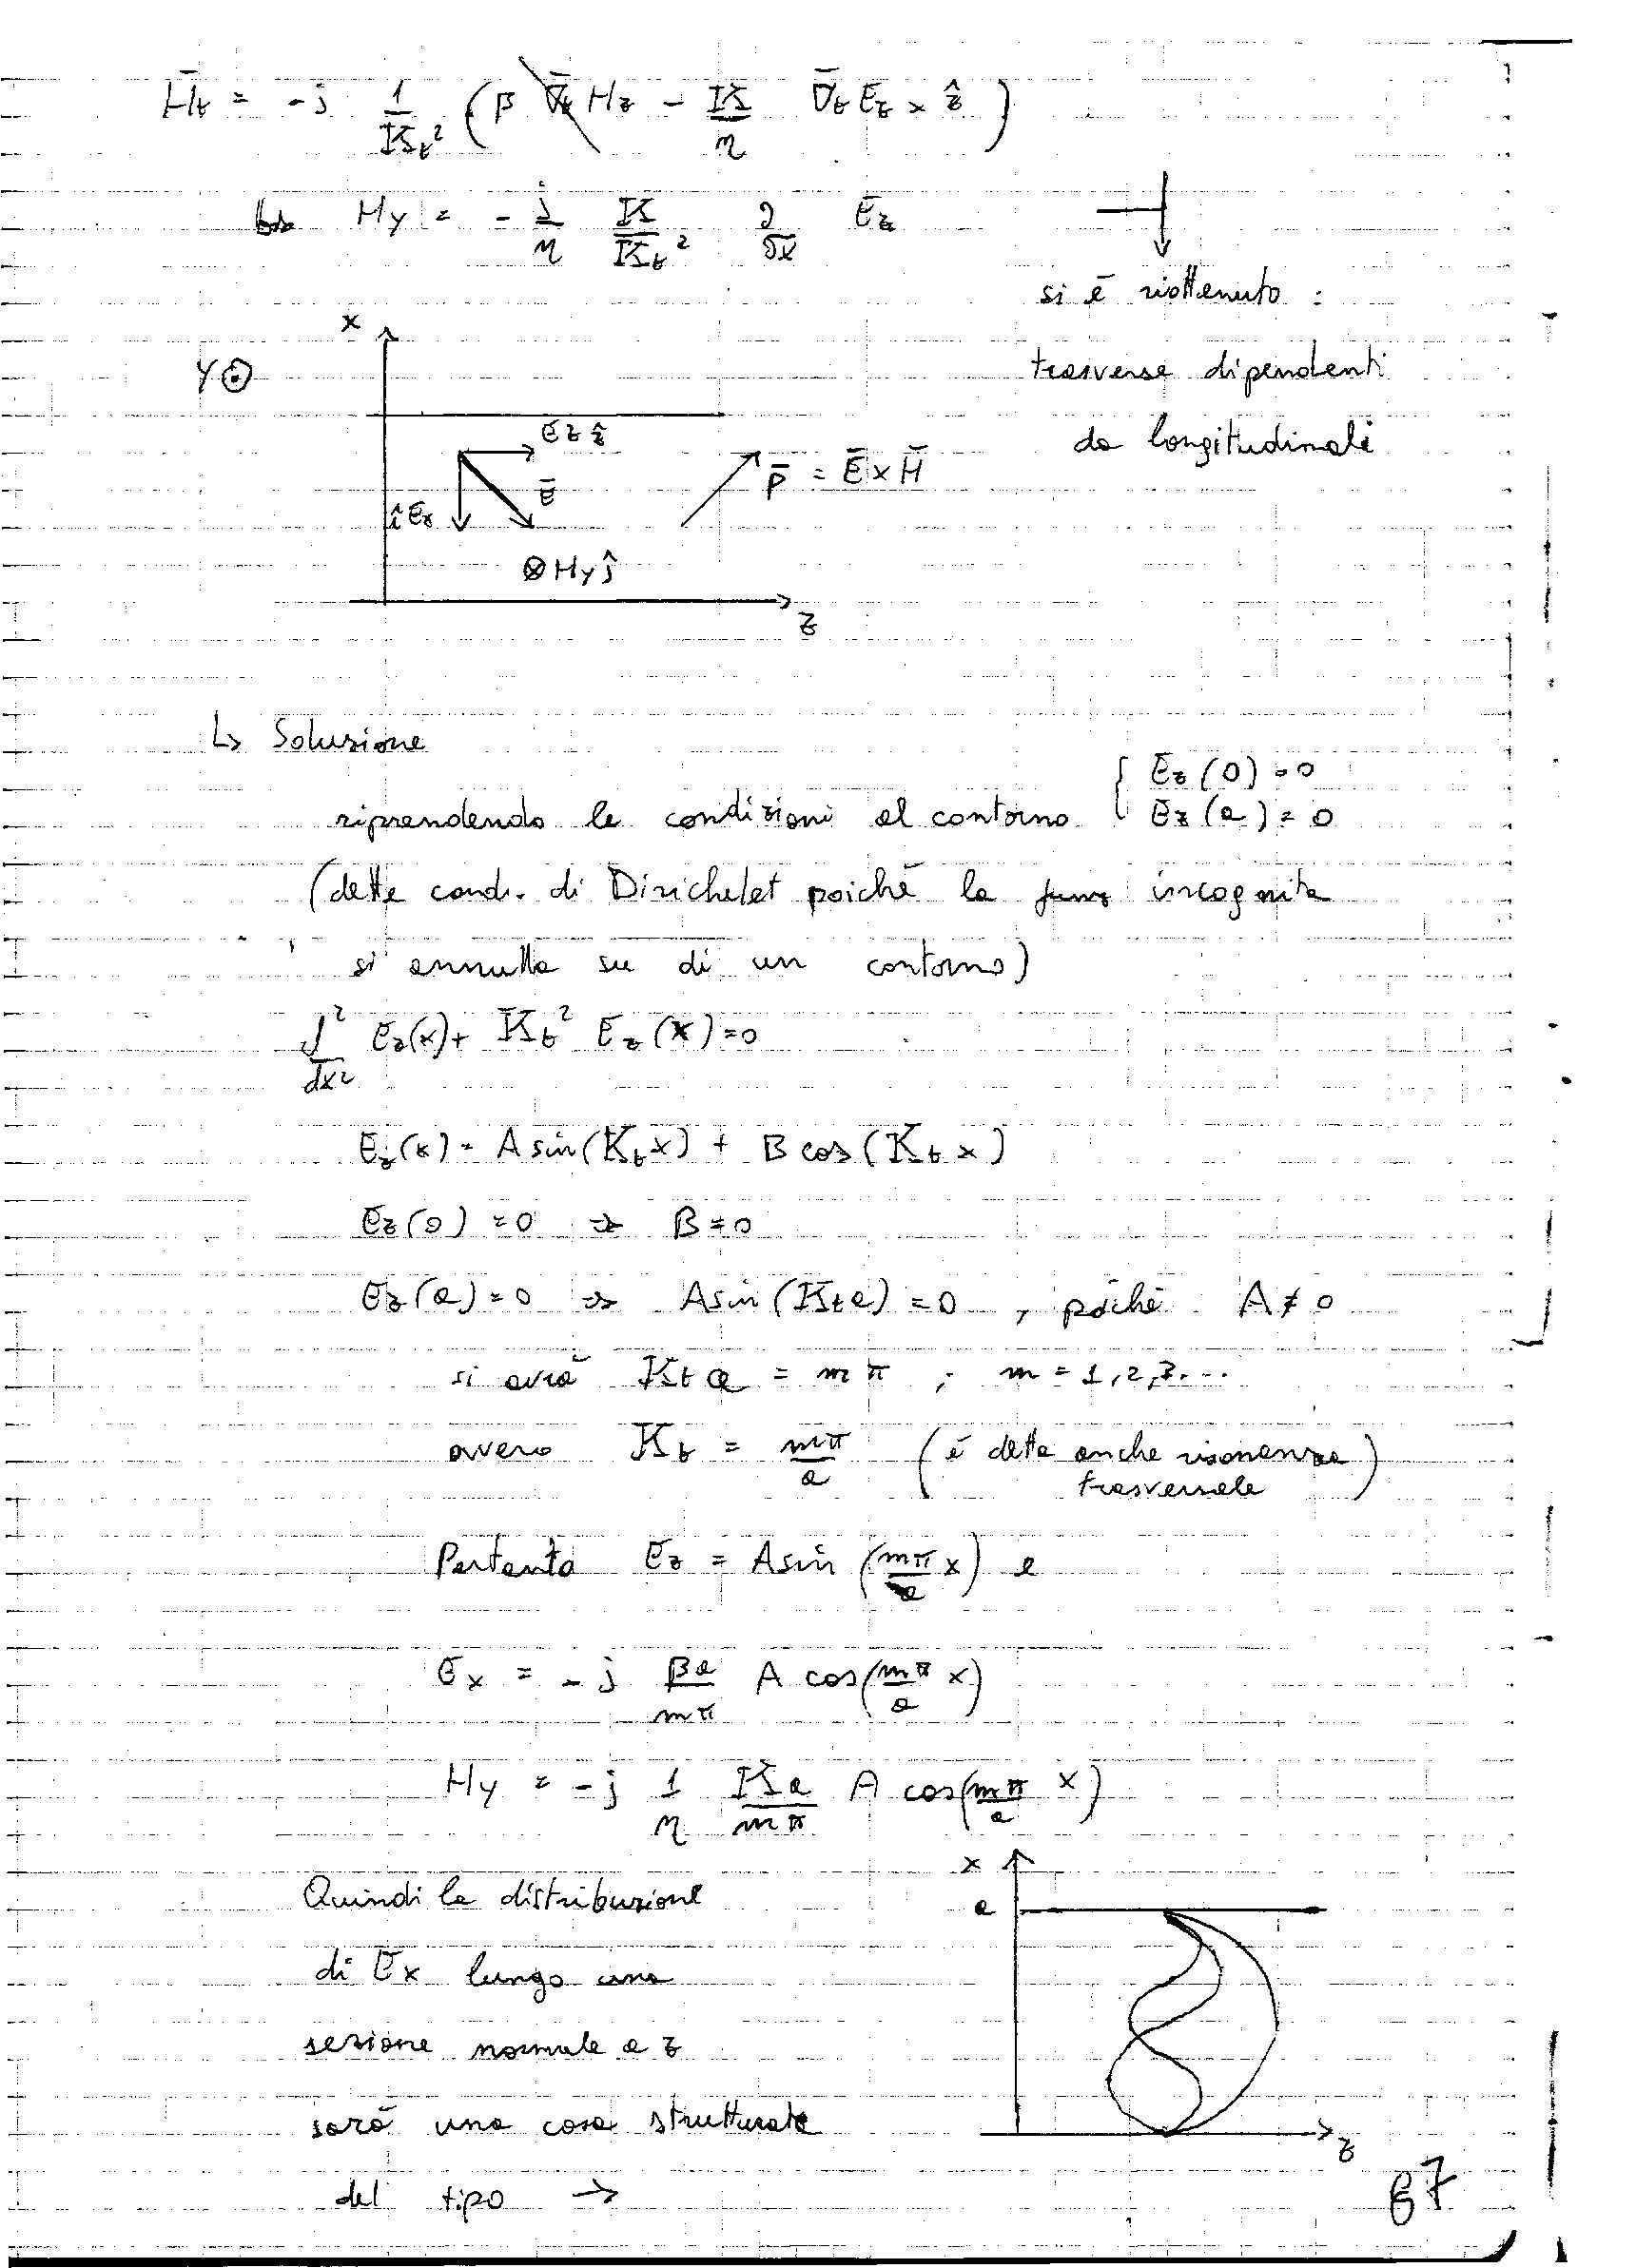 H̄t = -j 1/Kt² (β ∇̄t Hz - K/η ∇̄t Ez × ẑ)
↳ Hy = - j/η K/Kt² ∂/∂x Ez
si è riottenuto :
trasverse dipendenti
da longitudinali
x
Y⊙
Ez ẑ
Ē
îEx
P̄ = Ē × H̄
⊗ Hy ĵ
z
↳ Soluzione
riprendendo le condizioni al contorno { Ez(0) = 0
Ez(a) = 0
(dette cond. di Dirichelet poichè la funz incognita
si annulla su di un contorno)
d²/dx² Ez(x) + Kt² Ez(x) = 0
Ez(x) = A sin(Kt x) + B cos(Kt x)
Ez(0) = 0 ⇒ B = 0
Ez(a) = 0 ⇒ A sin(Kt a) = 0 , poichè A ≠ 0
si avrà Kt a = mπ ; m = 1,2,3...
ovvero Kt = mπ/a (è detta anche risonanza
trasversale)
Pertanto Ez = A sin (mπ/a x) e
Ex = -j βa/mπ A cos(mπ/a x)
Hy = -j 1/η Ka/mπ A cos(mπ/a x)
Quindi la distribuzione
di Ex lungo una
sezione normale a z
sarà una cosa strutturata
del tipo →
x
a
z
67